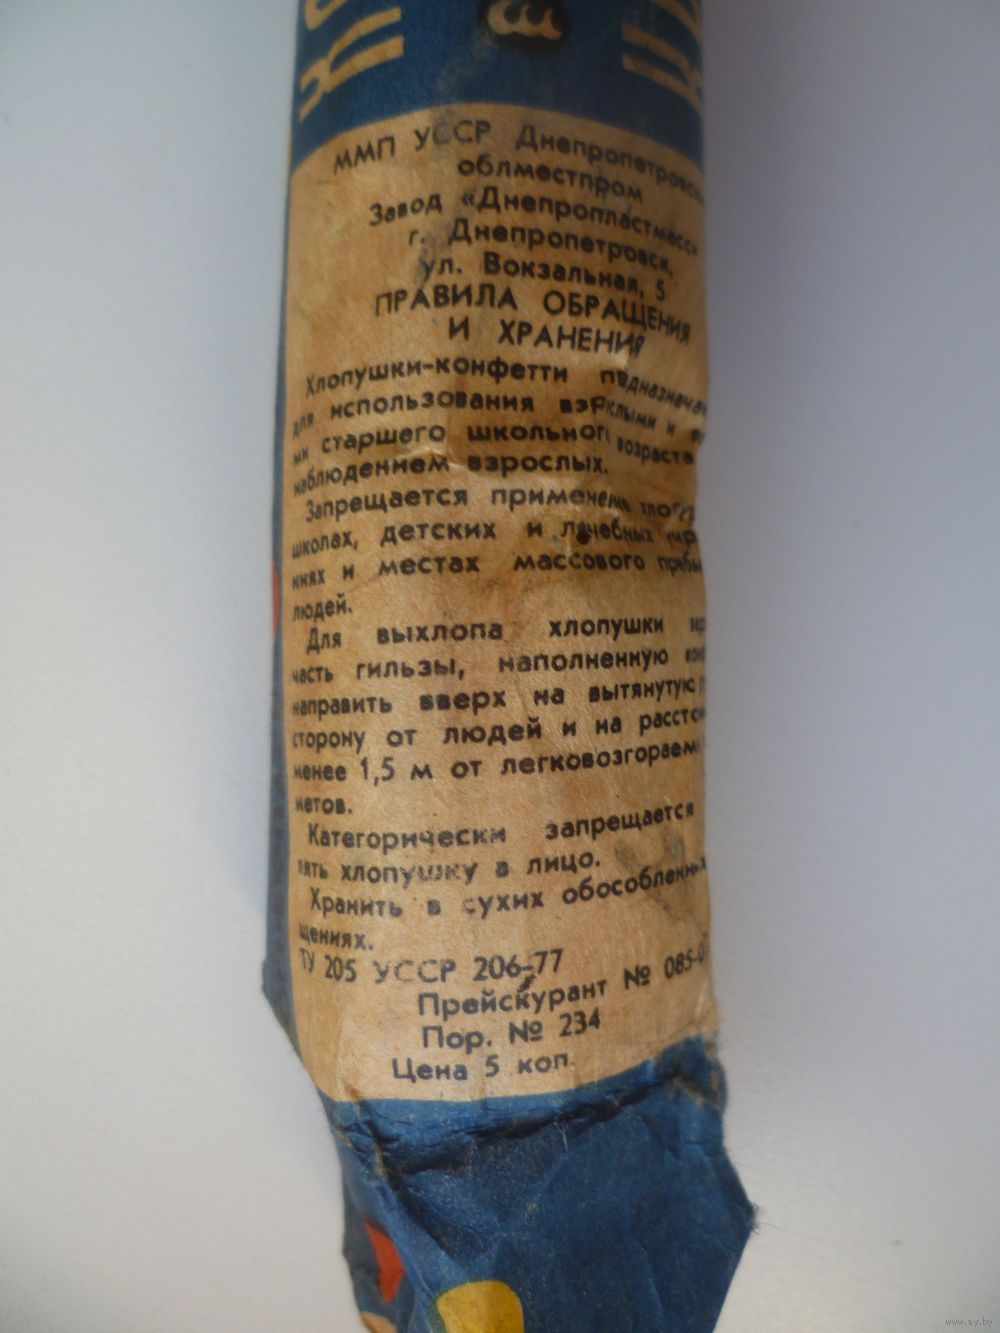 ММП УССР Днепропетровск
облместпром
Завод «Днепропластмасс»
г. Днепропетровск,
ул. Вокзальная, 5
ПРАВИЛА ОБРАЩЕНИЯ
И ХРАНЕНИЯ
Хлопушки-конфетти
для использования взрослыми и
ми старшего школьного возраста
наблюдением взрослых.
Запрещается применение
школах, детских и лечебных
ниях и местах массового
людей.
Для выхлопа хлопушки
часть гильзы, наполненную
направить вверх на вытянутую
сторону от людей и на
менее 1,5 м от
метов.
Категорически запрещается
лять хлопушку в лицо.
Хранить в сухих обособленных
щениях.
ТУ 205 УССР 206-77
Прейскурант № 085-0
Пор. № 234
Цена 5 коп.
www.ay.by